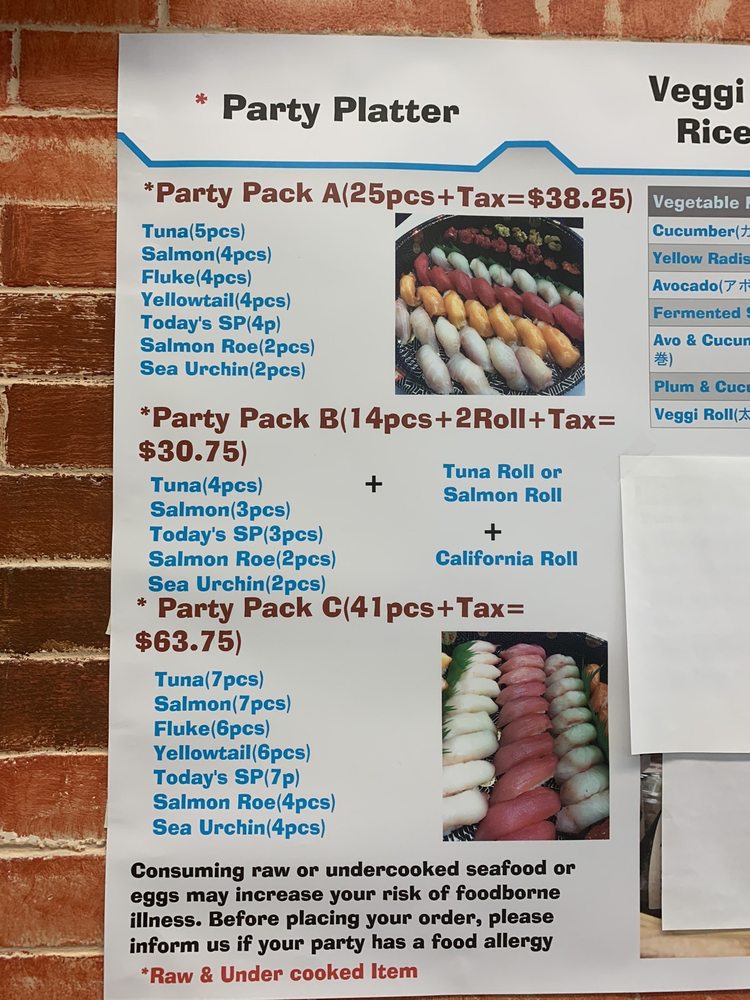 * Party Platter
*Party Pack A(25pcs+Tax=$38.25)
Tuna(5pcs)
Salmon(4pcs)
Fluke(4pcs)
Yellowtail(4pcs)
Today's SP(4p)
Salmon Roe(2pcs)
Sea Urchin(2pcs)
*Party Pack B(14pcs+2Roll+Tax=
$30.75)
Tuna(4pcs)
Salmon(3pcs)
Today's SP(3pcs)
Salmon Roe(2pcs)
Sea Urchin(2pcs)
+
Tuna Roll or
Salmon Roll
+
California Roll
* Party Pack C(41pcs+Tax=
$63.75)
Tuna(7pcs)
Salmon(7pcs)
Fluke(6pcs)
Yellowtail(6pcs)
Today's SP(7p)
Salmon Roe(4pcs)
Sea Urchin(4pcs)
Consuming raw or undercooked seafood or
eggs may increase your risk of foodborne
illness. Before placing your order, please
inform us if your party has a food allergy
*Raw & Under cooked Item
Veggi
Rice
Vegetable
Cucumber(カ
Yellow Radis
Avocado(アボ
Fermented
Avo & Cucum
巻)
Plum & Cucu
Veggi Roll(太